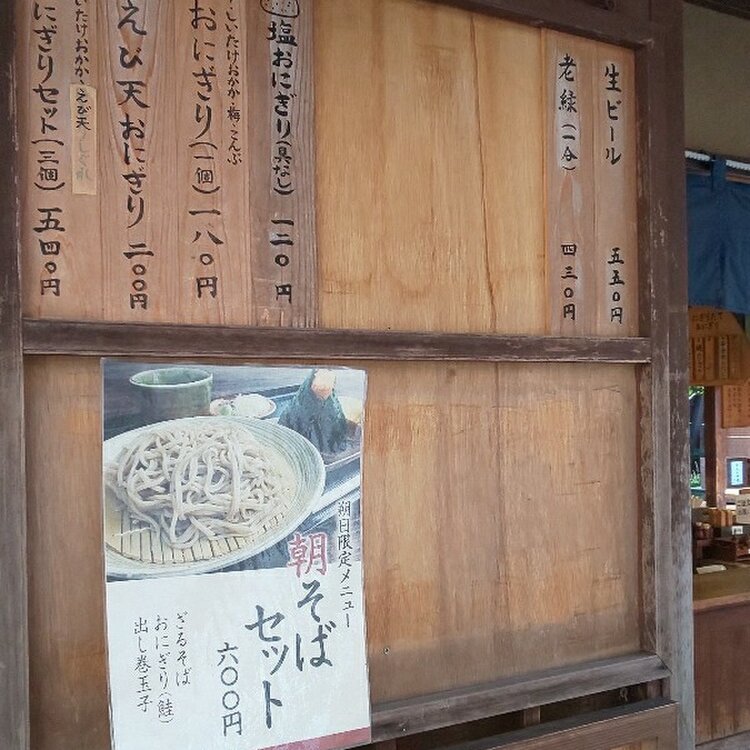 生ビール 五五〇円
老緑(一合) 四三〇円
塩おにぎり(具なし) 一二〇円
しいたけおかか・梅・こんぶ
おにぎり(一個) 一八〇円
えび天おにぎり 二〇〇円
いたけおかか・えび天・しぐれ
にぎりセット(三個) 五四〇円
朔日限定メニュー
朝そば
セット
六〇〇円
ざるそば
おにぎり(鮭)
出し巻玉子